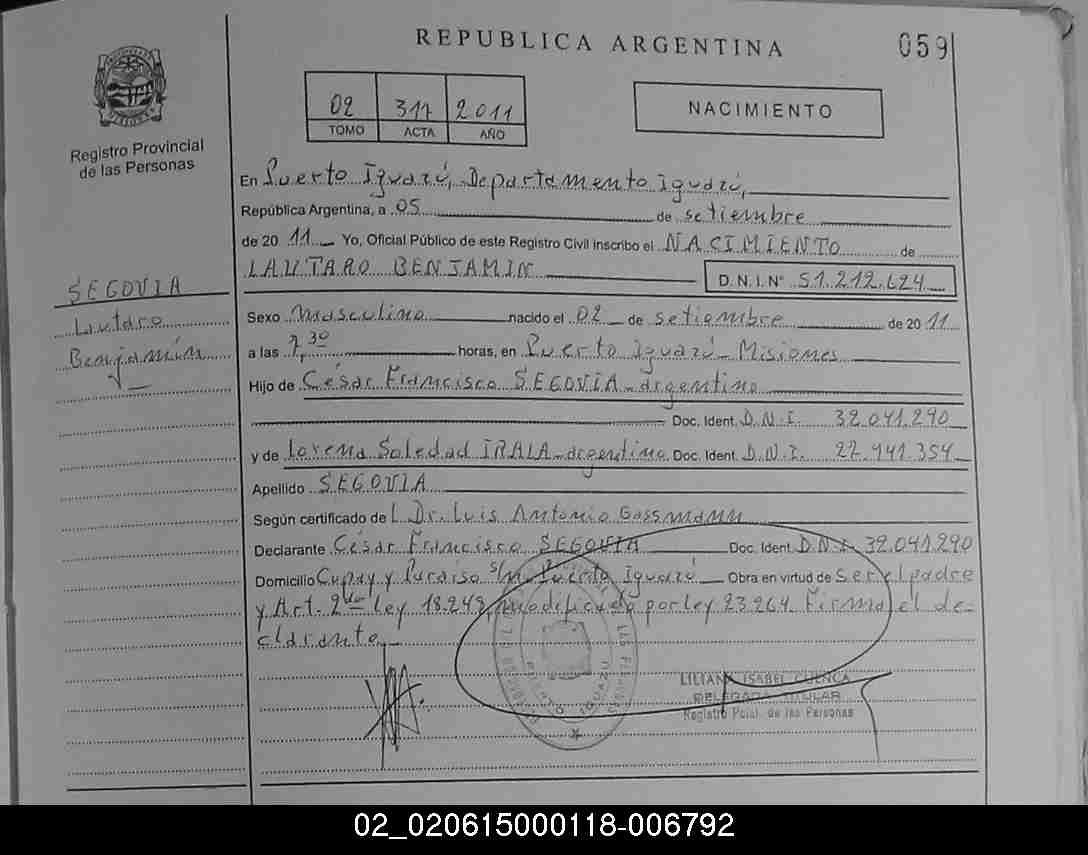 REPUBLICA ARGENTINA
059
02 317 2011
TOMO ACTA AÑO
NACIMIENTO
Registro Provincial
de las Personas
SEGOVIA
Lautaro
Benjamín
En Puerto Iguazú, Departamento Iguazú,
República Argentina, a 05 de setiembre
de 2011 Yo, Oficial Público de este Registro Civil inscribo el NACIMIENTO de
LAUTARO BENJAMIN D.N.I. Nº 51.212.624
Sexo masculino nacido el 02 de setiembre de 2011
a las 7,30 horas, en Puerto Iguazú - Misiones
Hijo de César Francisco SEGOVIA - argentino
Doc. Ident. D.N.I. 32.041.290
y de Lorena Soledad IRALA - argentina Doc. Ident. D.N.I.
Apellido SEGOVIA
Según certificado del Dr. Luis Antonio Gassmann
Declarante César Francisco SEGOVIA Doc. Ident. D.N.I. 32.041.290
Domicilio Cupay y Paraiso s/nº Puerto Iguazú Obra en virtud de ser el padre
y Art. 2do ley 18.248, modificado por ley 23264. Firma el de-
clarante.
LILIANA ISABEL CUENCA
DELEGADA TITULAR
Registro Pcial. de las Personas
02_020615000118-006792